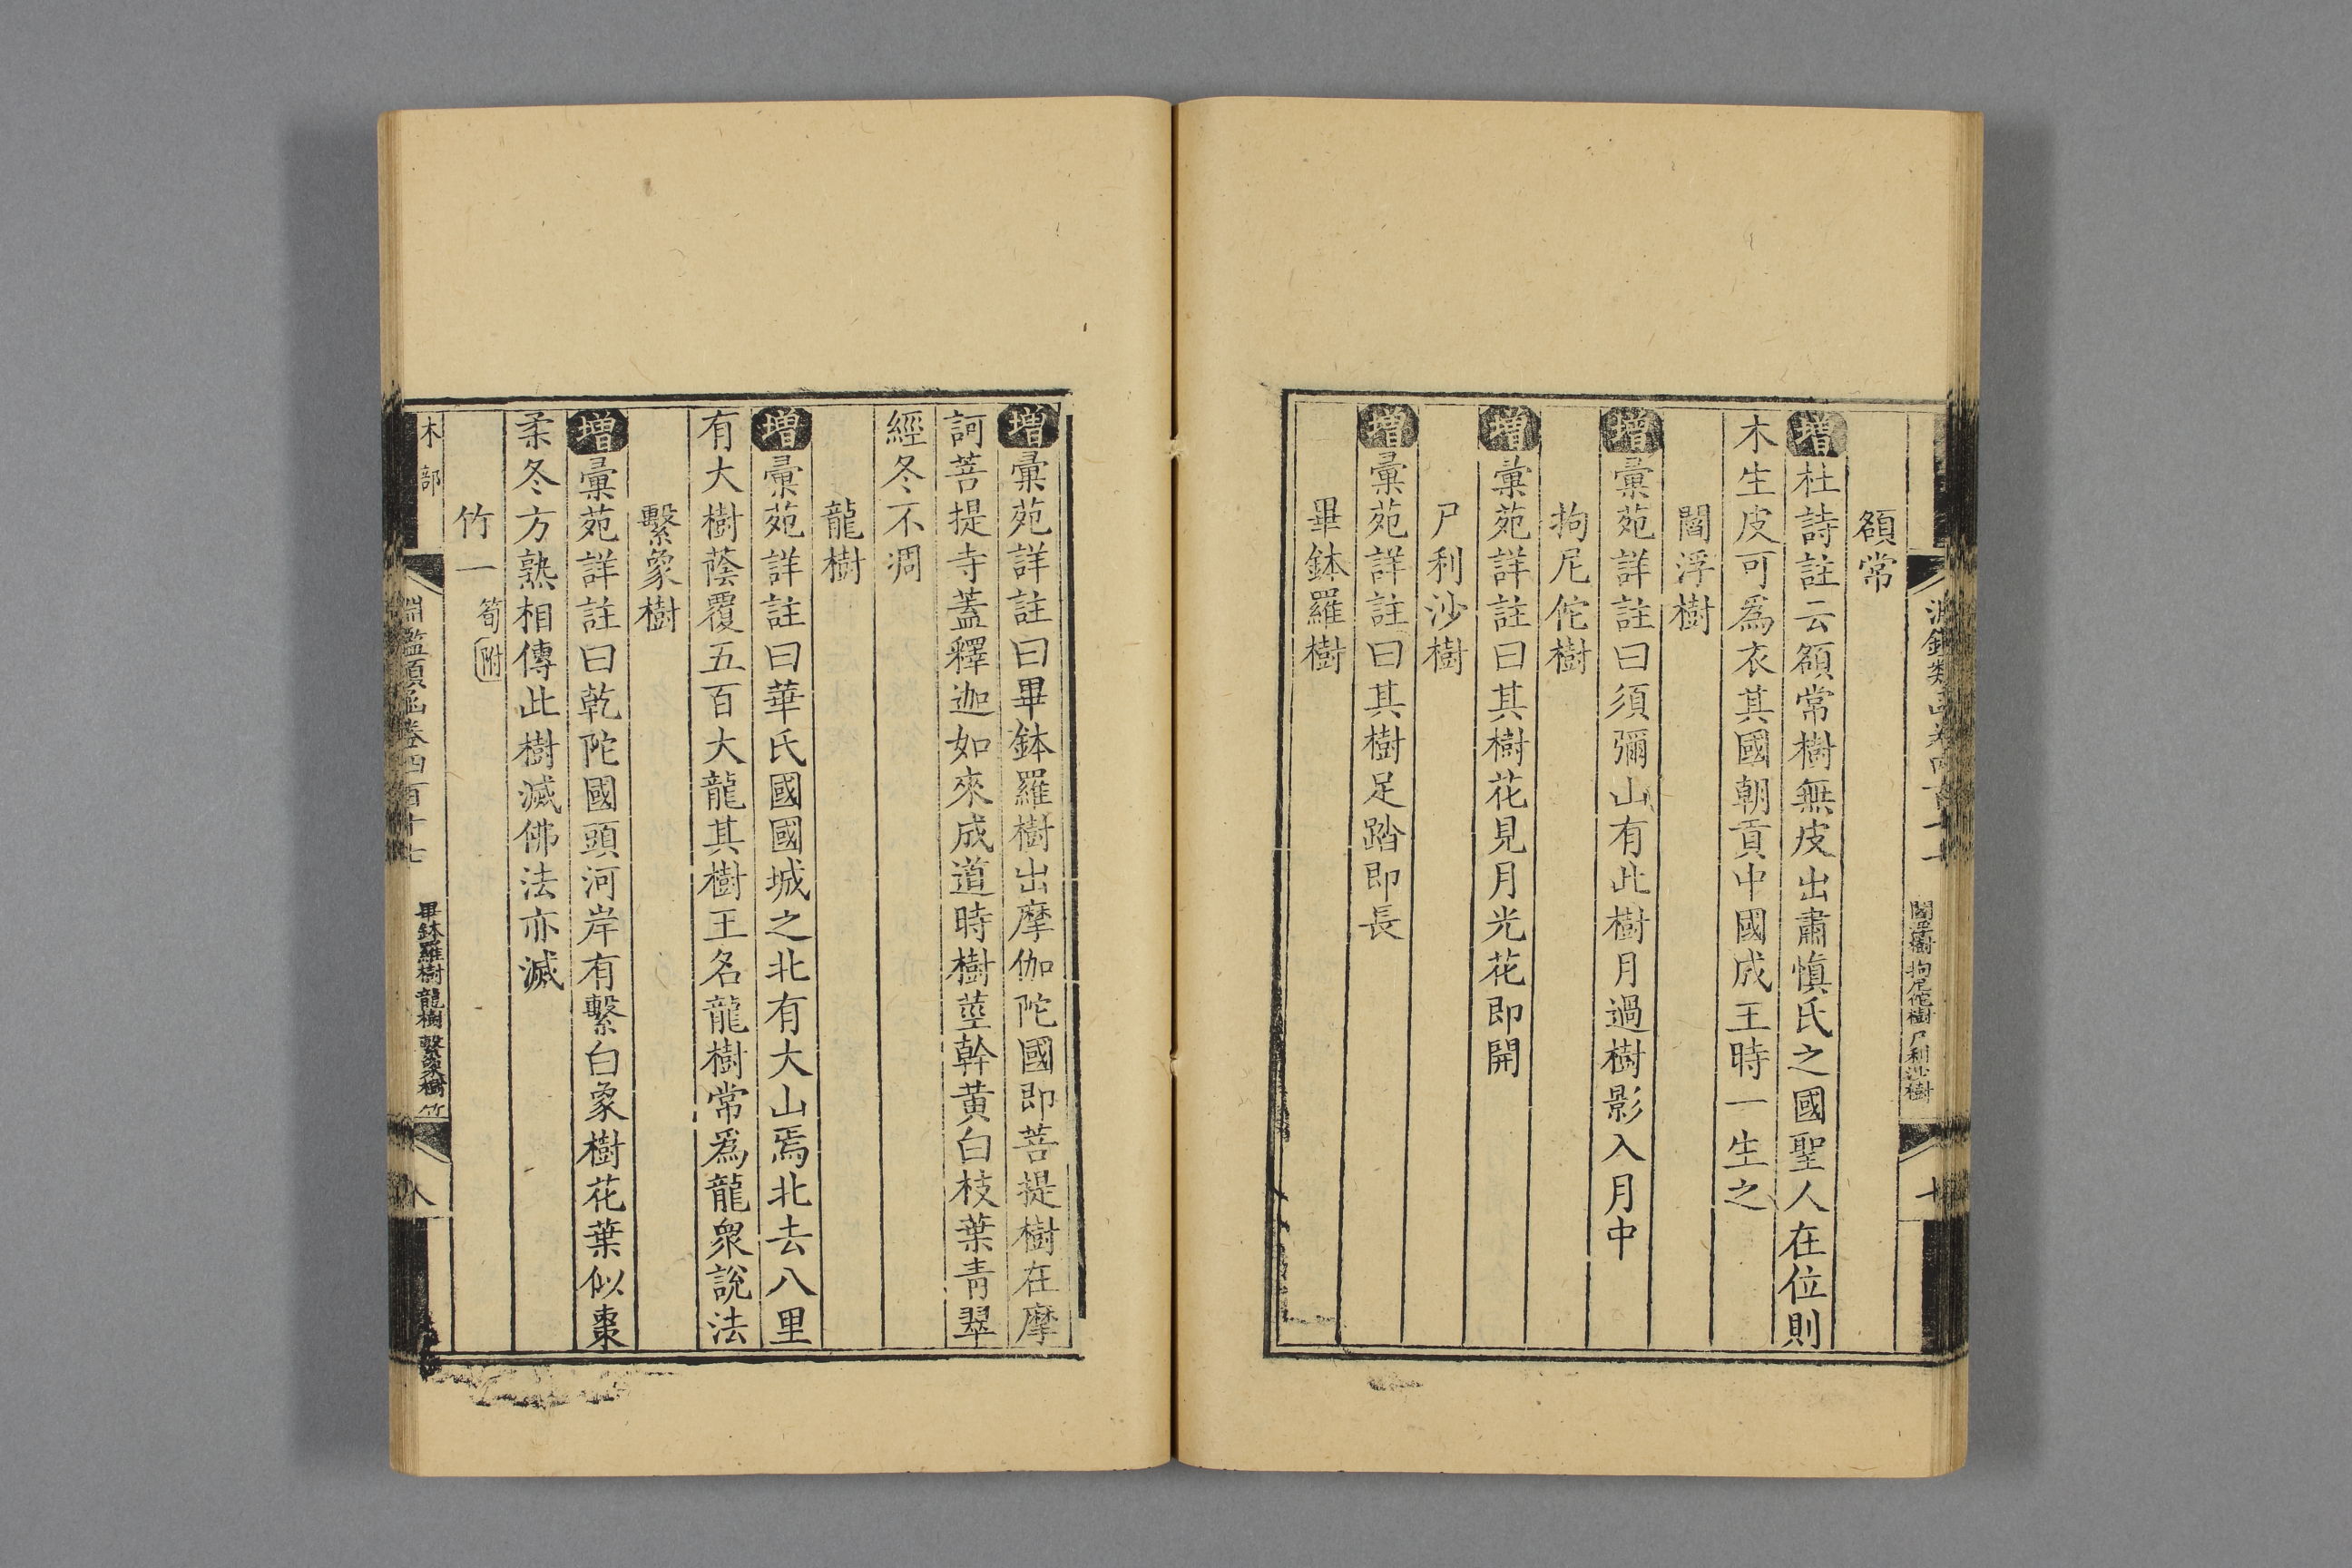 頟常
增杜詩註云頟常樹無皮出肅慎氏之國聖人在位則
木生皮可爲衣其國朝貢中國成王時一生之
閻浮樹
增彙苑詳註曰須彌山有此樹月過樹影入月中
拘尼佗樹
增彙苑詳註曰其樹花見月光花即開
尸利沙樹
增彙苑詳註曰其樹足踏即長
畢鉢羅樹
閻浮樹 拘尼佗樹 尸利沙樹
增彙苑詳註曰畢鉢羅樹出摩伽陀國即菩提樹在摩
訶菩提寺蓋釋迦如來成道時樹莖幹黃白枝葉青翠
經冬不凋
龍樹
增彙苑詳註曰華氏國國城之北有大山焉北去八里
有大樹蔭覆五百大龍其樹王名龍樹常爲龍衆說法
繫象樹
增彙苑詳註曰乾陀國頭河岸有繫白象樹花葉似棗
柔冬方熟相傳此樹滅佛法亦滅
竹一 筍附
木部
淵鑑類函卷四百十七
畢鉢羅樹 龍樹 繫象樹 竹
八